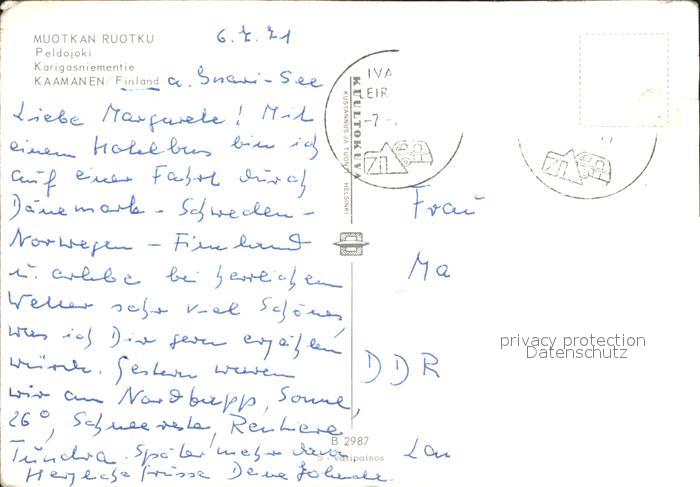 MUOTKAN RUOTKU
Peldojoki
Karigasniementie
KAAMANEN/Finland a. Inari-See
6.7.71
Liebe Margarete! Mit
einem Hotelbus bin ich
auf einer Fahrt durch
Dänemark - Schweden -
Norwegen - Finnland
u. erlebe bei herrlichem
Wetter sehr viel Schönes,
was ich Dir gern erzählen
würde. Gestern waren
wir am Nordkapp, Sonne,
26°, Schneereste, Rentiere,
Tundra. Später mehr davon
Herzliche Grüsse Deine
IVA
EIR
-7-
KUULTOKUVA
KUSTANNUS JA TUON
HELSINKI
Frau
Ma
DDR
Lau
privacy protection
Datenschutz
B 2987
5 - väripainos